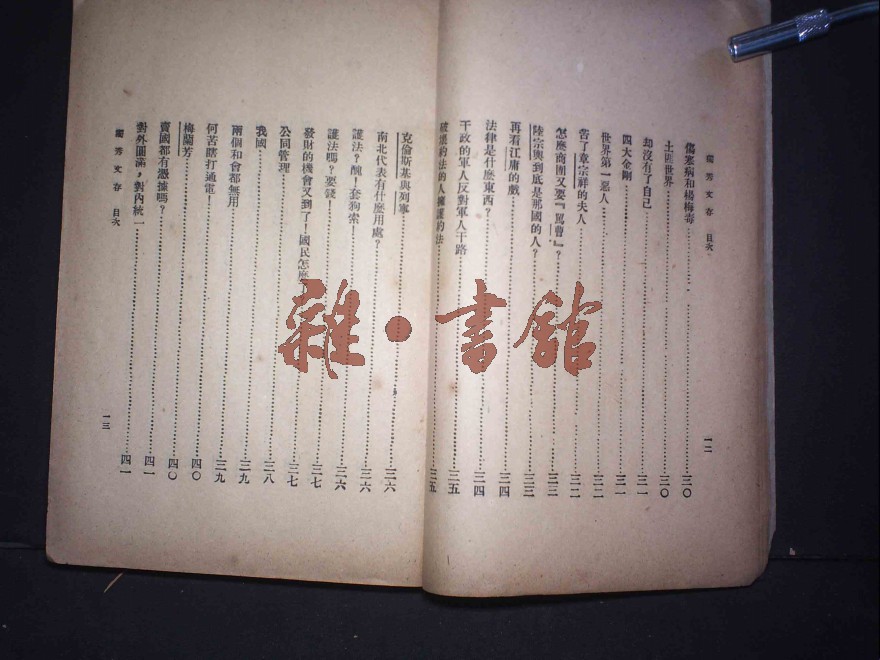 獨秀文存 目次
傷寒病和楊梅毒 三〇
土匪世界 三〇
却沒有了自己 三一
四大金剛 三一
世界第一惡人 三二
苦了章宗祥的夫人 三二
怎麼商團又要『罵曹』? 三三
陸宗輿到底是那國的人? 三三
再看江庸的戲 三四
法律是什麼東西? 三四
干政的軍人反對軍人干路 三五
破壞約法的人擁護約法 三五
一二
克倫斯基與列寧 三六
南北代表有什麼用處? 三六
護法?醜!套狗索! 三六
護法嗎?要錢! 三六
發財的機會又到了!國民怎麼 三七
公同管理 三七
我國 三八
兩個和會都無用 三九
何苦瞎打通電! 三九
梅蘭芳 四〇
賣國都有憑據嗎? 四〇
對外圓滿,對內統一 四一
四一
獨秀文存 目次
一三
雜·書館